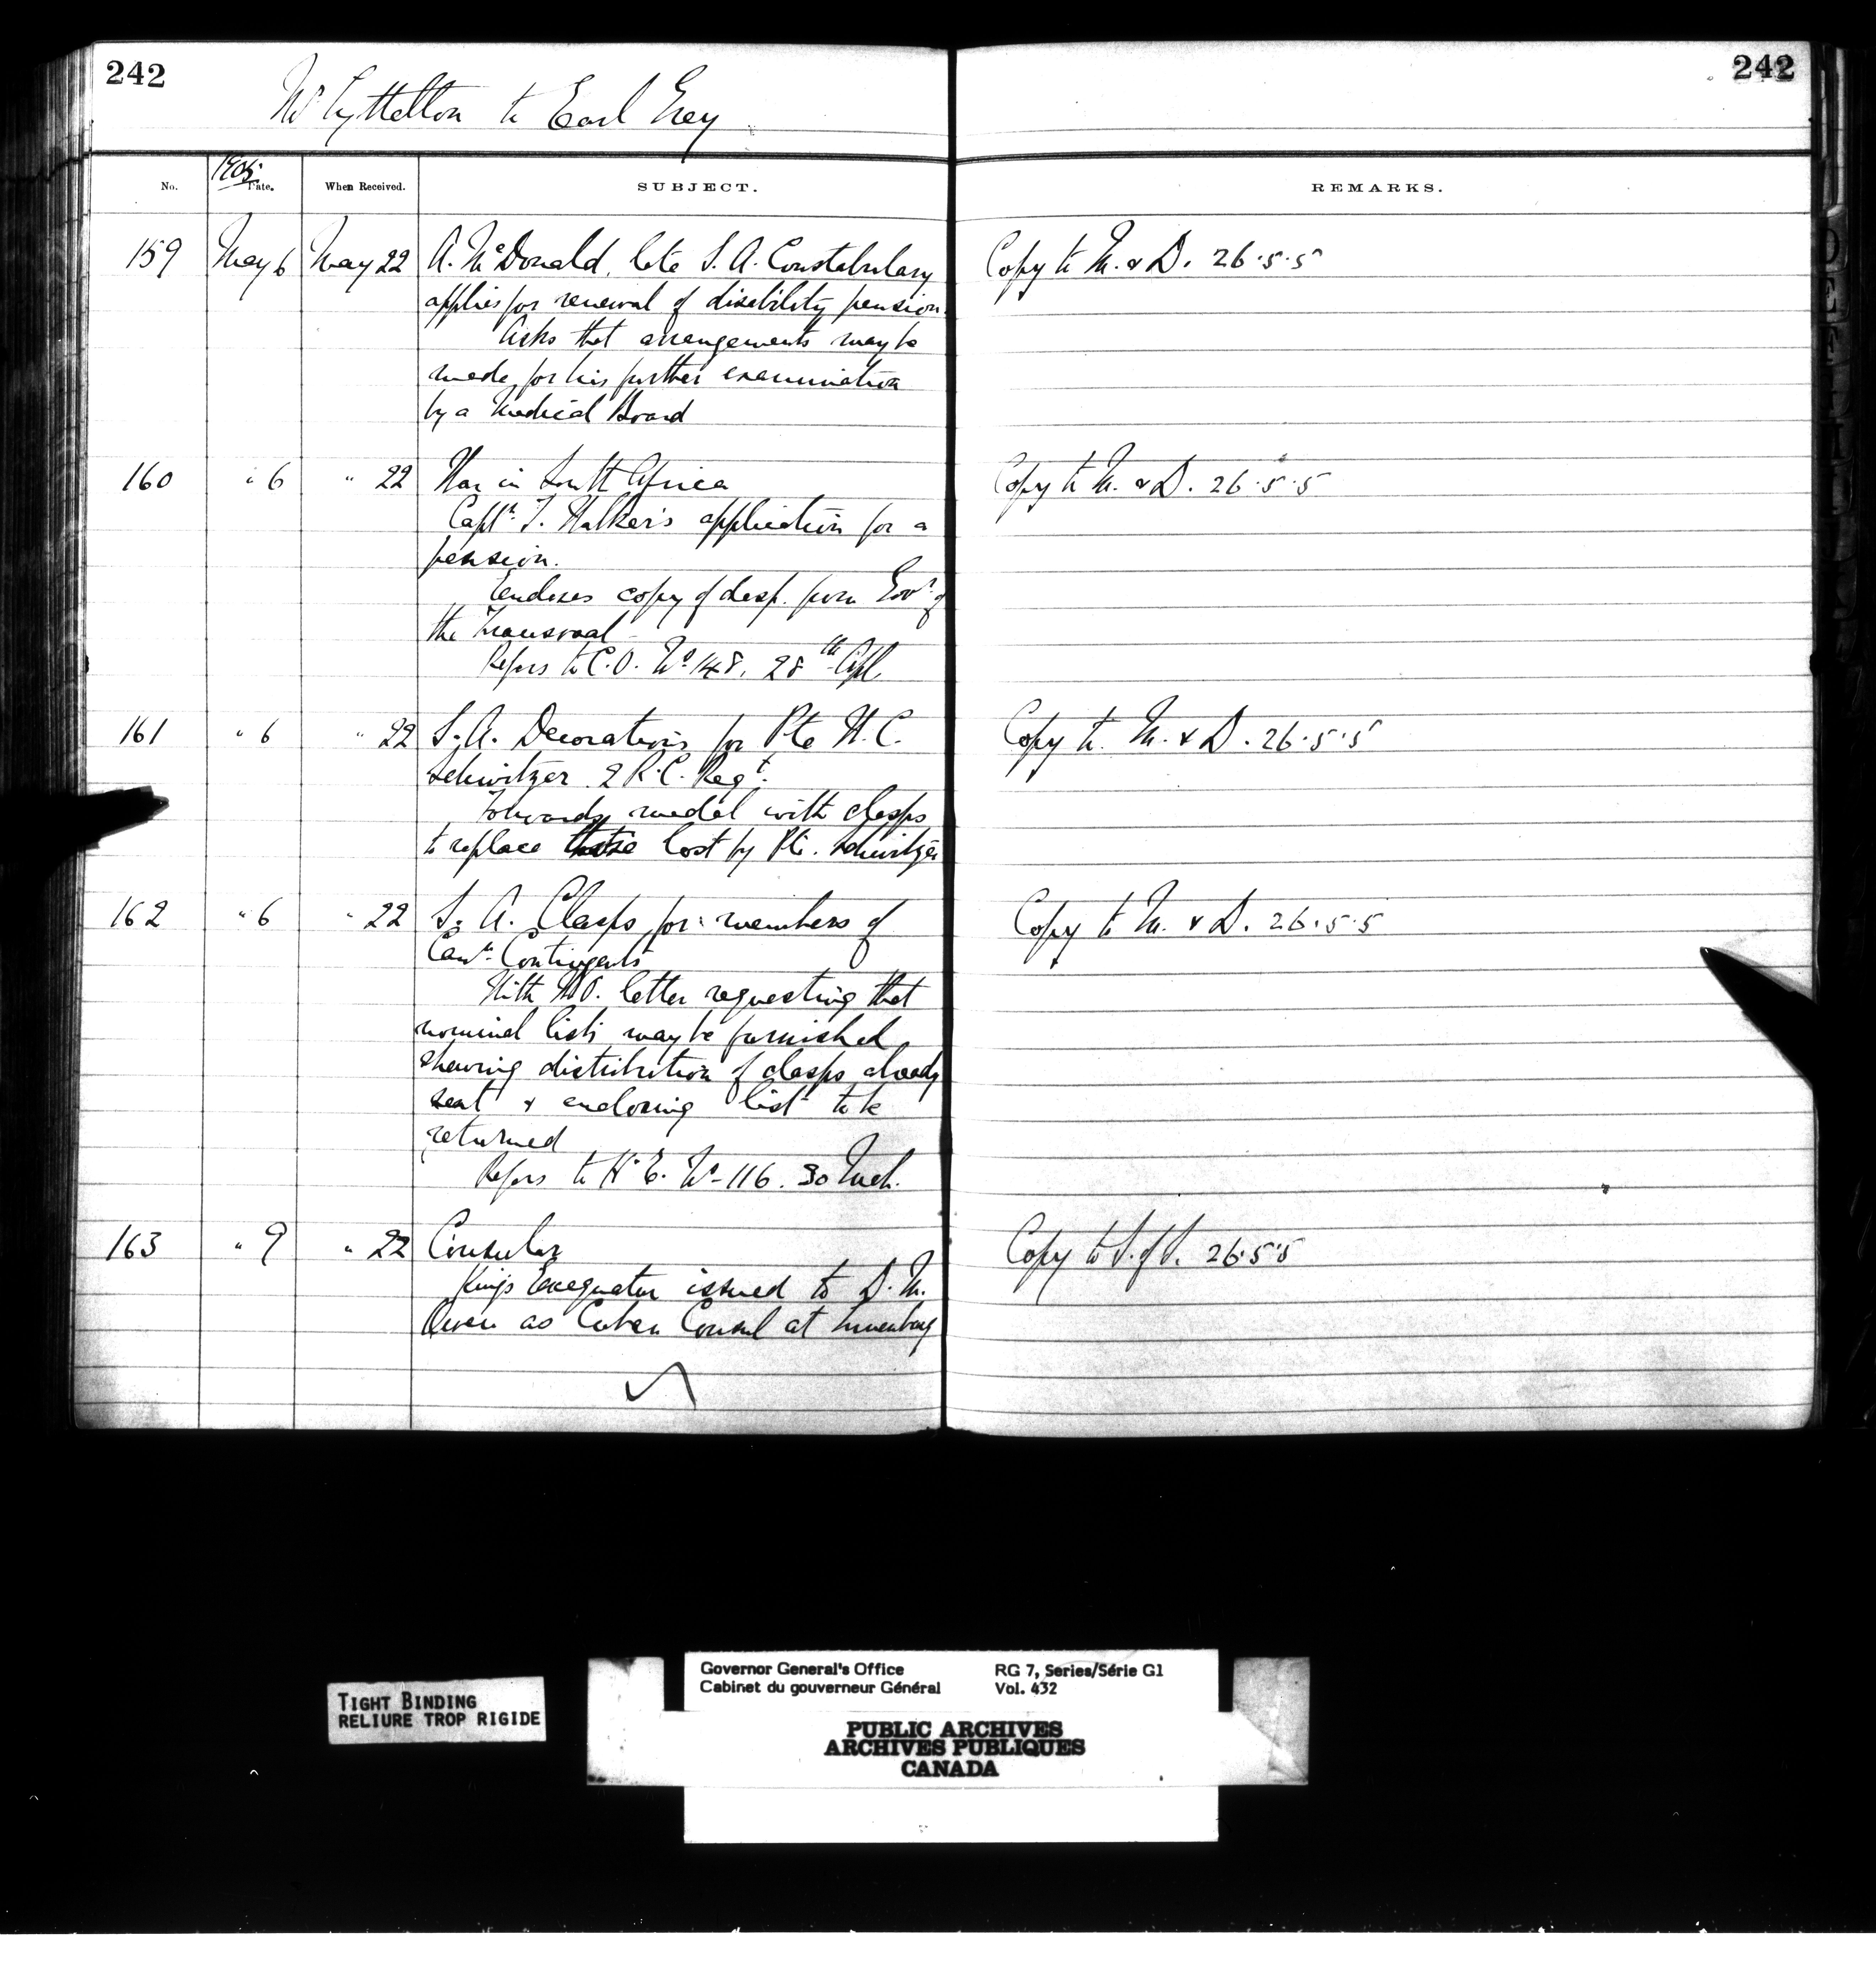 242
242
Mr Lyttelton to Earl Grey
1905
No.
Date.
When Received.
SUBJECT.
REMARKS.
159 May 6 May 22 A. McDonald, late S. A. Constabulary
Copy to M. & D. 26.5.5
applies for renewal of disability pension.
Asks that arrangements may be
made for his further examination
by a Medical Board
160 " 6 " 22 War in South Africa
Copy to M. & D. 26.5.5
Captn. F. Walker's application for a
pension.
Encloses copy of desp. from Govr. of
the Transvaal
Refers to C.O. No. 148. 28th Apl.
161 " 6 " 22 S. A. Decorations for Pte H. C.
Copy to M. & D. 26.5.5
Schwitzer 2 R.C. Regt.
Forwards medal with clasps
to replace those lost by Pte. Schwitzer
162 " 6 " 22 S. A. Clasps for members of
Copy to M. & D. 26.5.5
Cann. Contingents
With W.O. letter requesting that
nominal lists may be furnished
shewing distribution of clasps already
sent & enclosing list to be
returned
Refers to H.E. No. 116. 30 Mch.
163 " 9 " 22 Consular
Copy to S. of S. 26.5.5
King's Exequatur issued to D. M.
Owen as Cuban Consul at Lunenburg
TIGHT BINDING
RELIURE TROP RIGIDE
Governor General's Office
Cabinet du gouverneur Général
RG 7, Series/Série G1
Vol. 432
PUBLIC ARCHIVES
ARCHIVES PUBLIQUES
CANADA